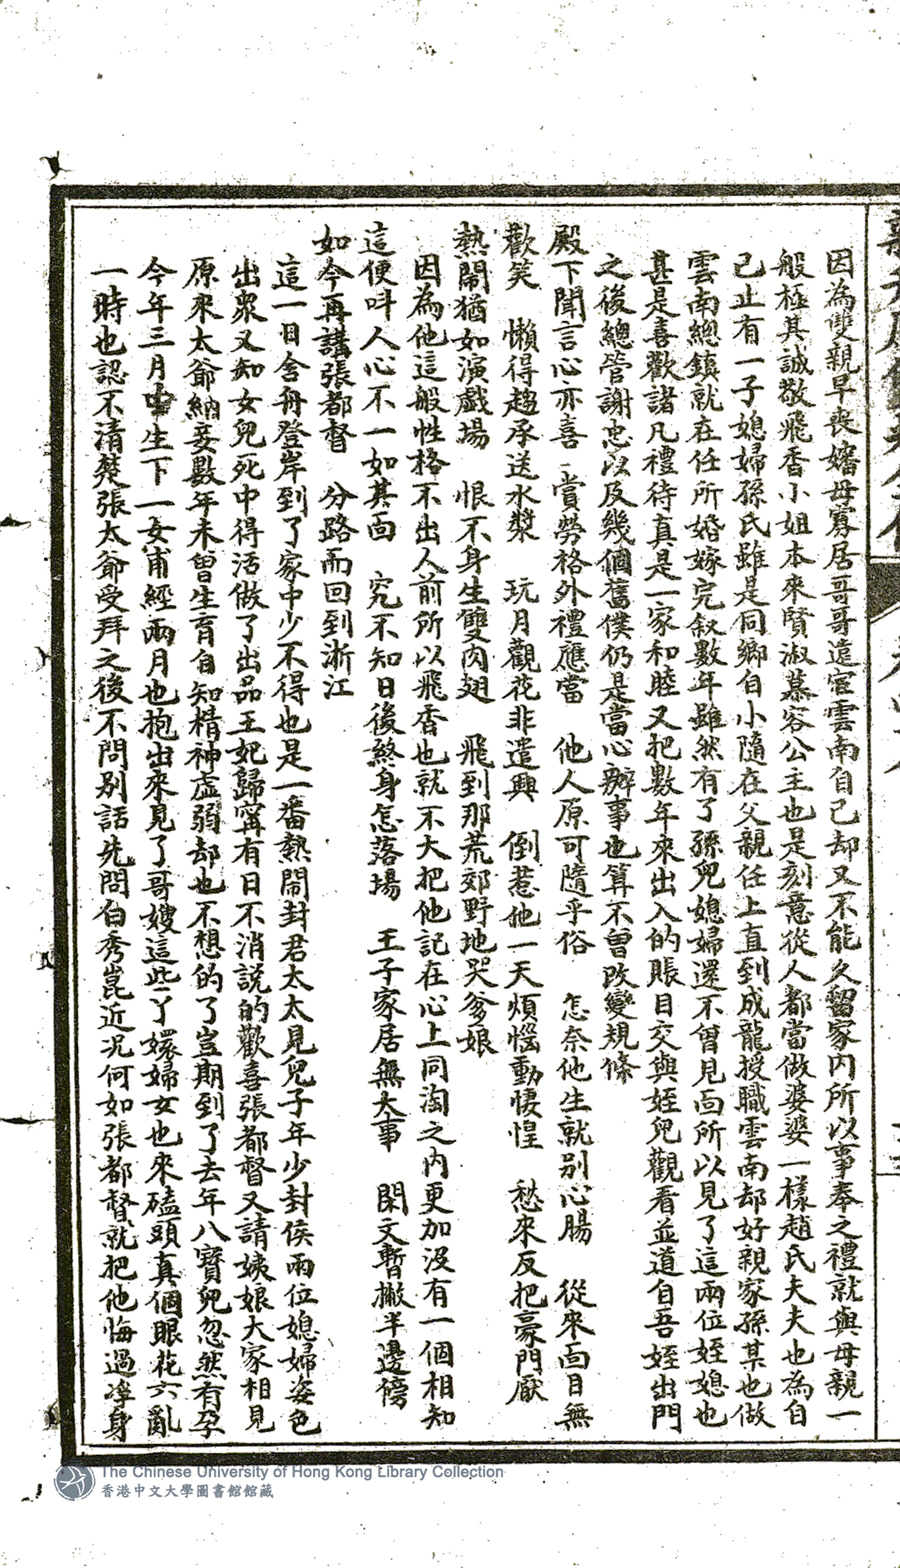 因為雙親早喪嬸母寡居哥哥遠宦雲南自己却又不能久留家内所以事奉之禮就與母親一
般極其誠敬飛香小姐本來賢淑慕容公主也是刻意從人都當做婆婆一樣趙氏夫夫也為自
己止有一子媳婦孫氏雖是同鄉自小隨在父親任上直到成龍授職雲南却好親家孫某也做
雲南總鎮就在任所婚嫁完叙數年雖然有了孫兒媳婦還不曾見面所以見了這兩位姪媳也
甚是喜歡諸凡禮待真是一家和睦又把數年來出入的賬目交與姪兒觀看並道自吾姪出門
之後總管謝忠以及幾個舊僕仍是當心辦事也算不曾改變規條
殿下聞言心亦喜 賞勞格外禮應當 他人原可隨乎俗 怎奈他生就别心腸 從來面目無
歡笑 懶得趨承送水漿 玩月觀花非遣興 倒惹他一天煩惱動悽惶 愁來反把豪門厭
熱鬧猶如演戲場 恨不身生雙肉翅 飛到那荒郊野地哭爹娘
因為他這般性格不出人前所以飛香也就不大把他記在心上同淘之内更加没有一個相知
這便呌人心不一如其面 究不知日後煞身怎落場 王子家居無大事 閑文暫撇半邊傍
如今再講張都督 分路而回到浙江
這一日舍舟登岸到了家中少不得也是一番熱鬧封君太太見兒子年少封侯兩位媳婦姿色
出衆又知女兒死中得活做了出品王妃歸寧有日不消説的歡喜張都督又請姨娘大家相見
原來太爺納妾數年未曾生育自知精神虛弱却也不想的了豈期到了去年八寶兒忽然有孕
今年三月中生下一女甫經兩月也抱出來見了哥嫂這些丫嬛婦女也來磕頭真個眼花六亂
一時也認不清楚張太爺受拜之後不問别話先問白秀崑近况何如張都督就把他悔過淳身
The Chinese University of Hong Kong Library Collection
香港中文大學圖書館館藏